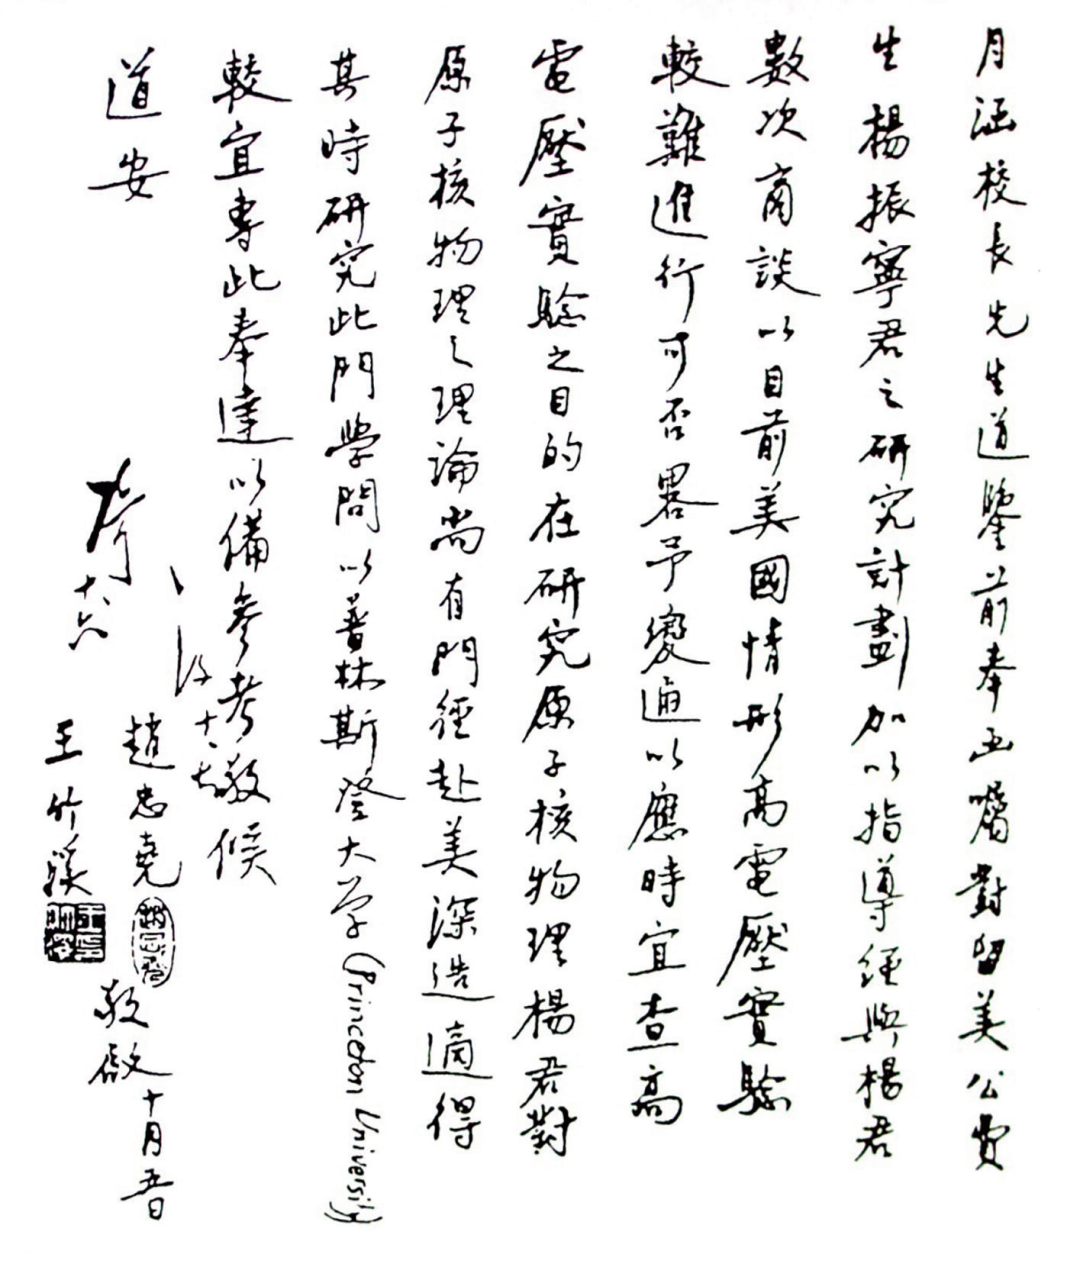 月涵校長先生道鑒前奉函囑對留美公費
生楊振寧君之研究計劃加以指導經與楊君
數次商談以目前美國情形高電壓實驗
較難進行可否畧予變通以應時宜查高
電壓實驗之目的在研究原子核物理楊君對
原子核物理之理論尚有門徑赴美深造適得
其時研究此門學問以普林斯登大学(Princeton University)
較宜專此奉達以備參考敬候
道安
趙忠堯
王竹溪
敬啟十月五日
十六